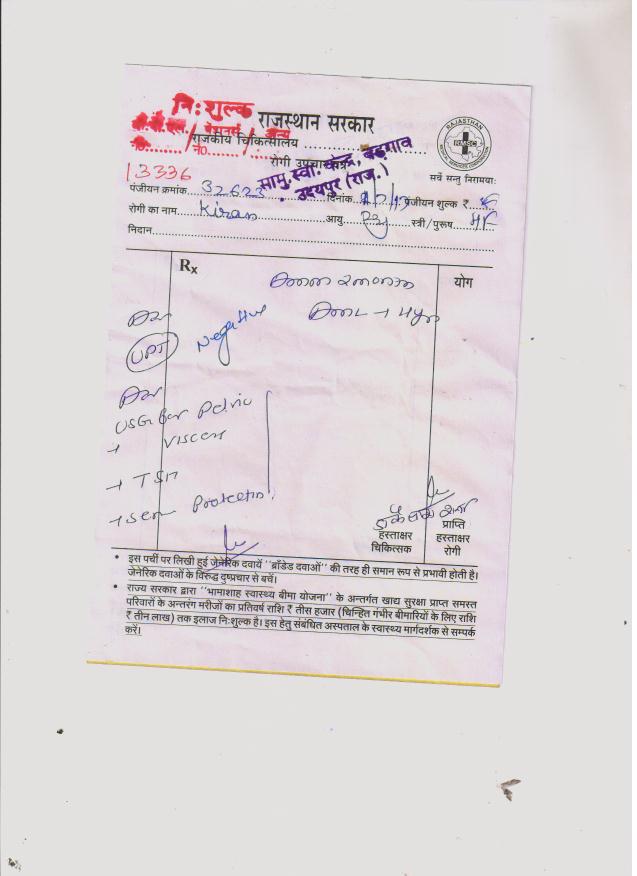 निःशुल्क
राजस्थान सरकार
बी.पी.एल. / पेंशनर्स / अन्य
राजकीय चिकित्सालय
नं० No.
रोगी उपचार
सामु. स्वा. केन्द्र, बड़गांव
उदयपुर (राज.)
RAJASTHAN
RMSC
MEDICAL SERVICES CORPORATION
सर्वे सन्तु निरामयाः
13336
पंजीयन क्रमांक 32623 दिनांक पंजीयन शुल्क ₹
रोगी का नाम Kiran आयु स्त्री/पुरूष
निदान
Rx
योग
UPT Negative
USG for Pelvic
→ Viscera
→ TSH
→ Ser Prolactin
हस्ताक्षर
चिकित्सक
प्राप्ति
हस्ताक्षर
रोगी
• इस पर्ची पर लिखी हुई जेनेरिक दवायें ''ब्रॉंडेड दवाओं'' की तरह ही समान रूप से प्रभावी होती है।
जेनेरिक दवाओं के विरुद्ध दुष्प्रचार से बचें।
• राज्य सरकार द्वारा ''भामाशाह स्वास्थ्य बीमा योजना'' के अन्तर्गत खाद्य सुरक्षा प्राप्त समस्त
परिवारों के अन्तरंग मरीजों का प्रतिवर्ष राशि ₹ तीस हजार (चिन्हित गंभीर बीमारियों के लिए राशि
₹ तीन लाख) तक इलाज निःशुल्क है। इस हेतु संबंधित अस्पताल के स्वास्थ्य मार्गदर्शक से सम्पर्क
करें।